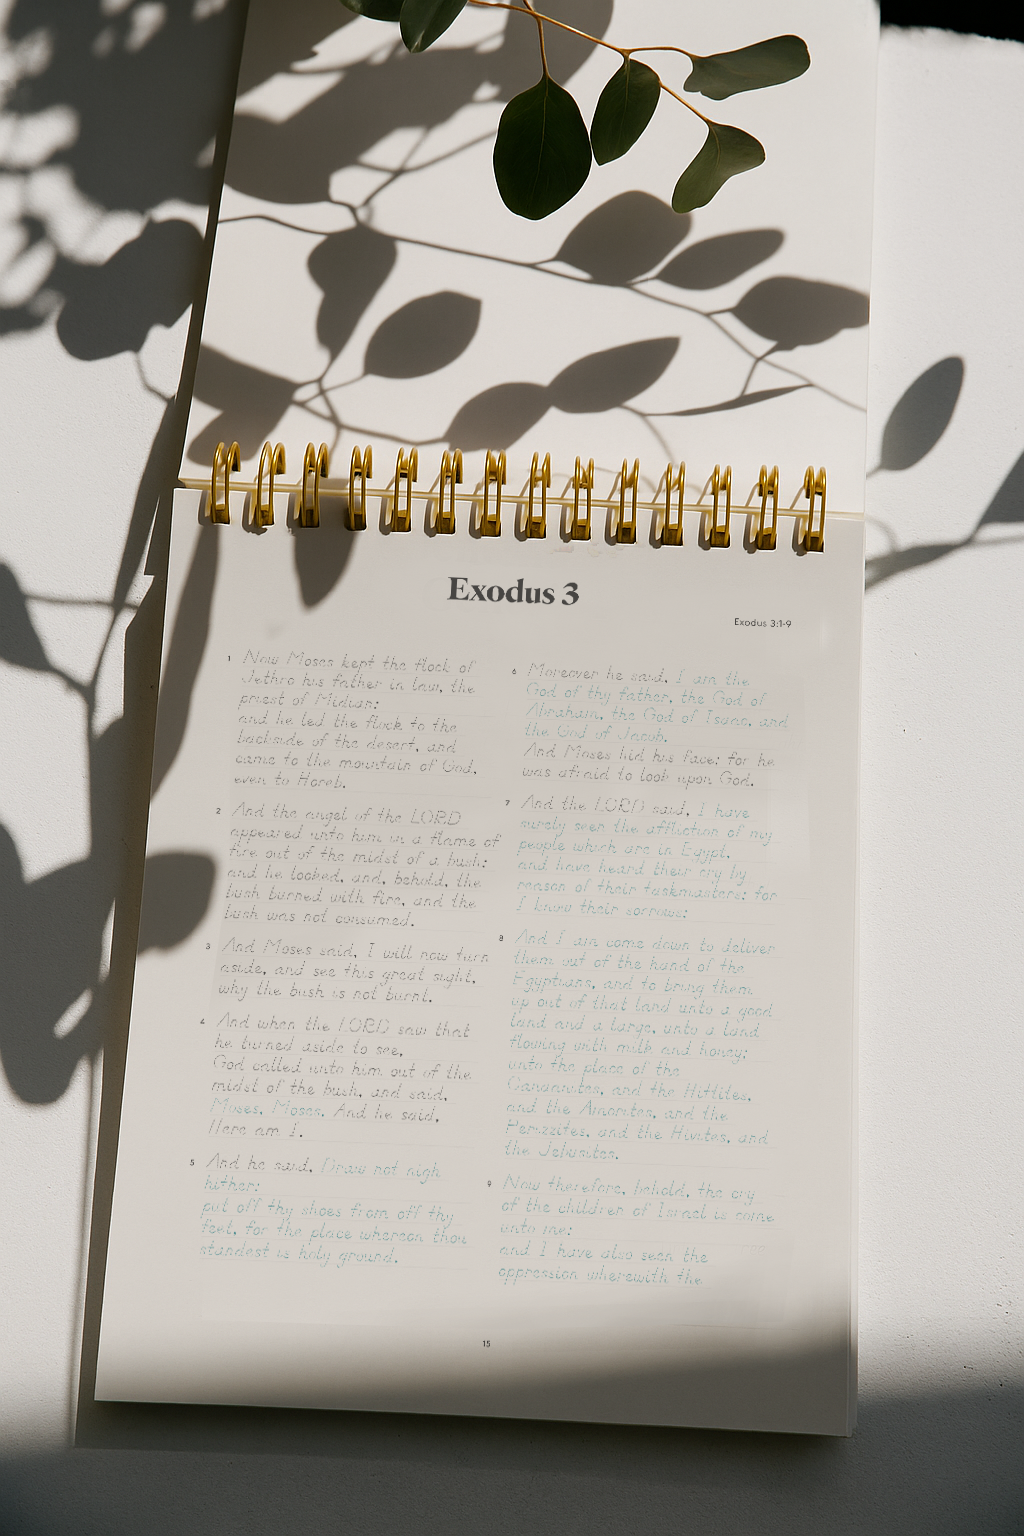 Exodus 3
Exodus 3:1-9
1 Now Moses kept the flock of
Jethro his father in law, the
priest of Midian:
and he led the flock to the
backside of the desert, and
came to the mountain of God,
even to Horeb.
2 And the angel of the LORD
appeared unto him in a flame of
fire out of the midst of a bush:
and he looked, and, behold, the
bush burned with fire, and the
bush was not consumed.
3 And Moses said, I will now turn
aside, and see this great sight,
why the bush is not burnt.
4 And when the LORD saw that
he turned aside to see,
God called unto him out of the
midst of the bush, and said,
Moses, Moses. And he said,
Here am I.
5 And he said, Draw not nigh
hither:
put off thy shoes from off thy
feet, for the place whereon thou
standest is holy ground.
6 Moreover he said, I am the
God of thy father, the God of
Abraham, the God of Isaac, and
the God of Jacob.
And Moses hid his face; for he
was afraid to look upon God.
7 And the LORD said, I have
surely seen the affliction of my
people which are in Egypt,
and have heard their cry by
reason of their taskmasters; for
I know their sorrows;
8 And I am come down to deliver
them out of the hand of the
Egyptians, and to bring them
up out of that land unto a good
land and a large, unto a land
flowing with milk and honey;
unto the place of the
Canaanites, and the Hittites,
and the Amorites, and the
Perizzites, and the Hivites, and
the Jebusites.
9 Now therefore, behold, the cry
of the children of Israel is come
unto me:
and I have also seen the
oppression wherewith the
15